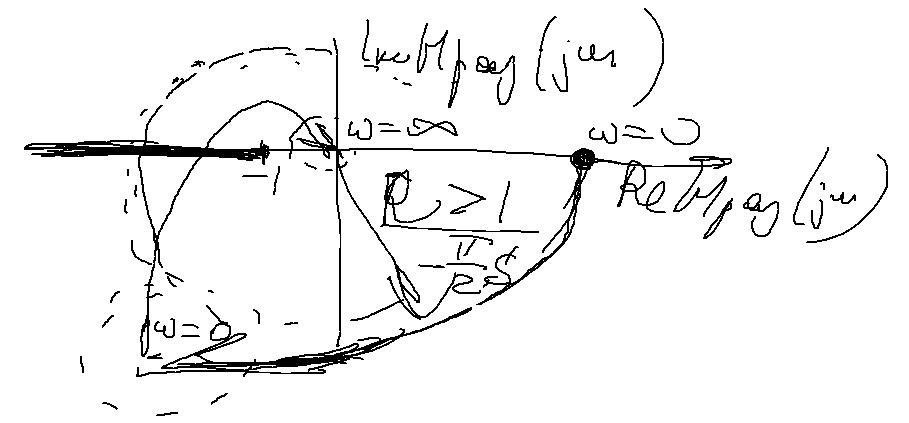 Im Wраз(jω)
ω=∞
ω=0
-1
R>1
Re Wраз(jω)
-π/2 S
ω=0